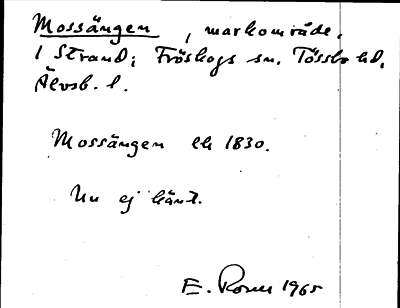 Mossängen, markområde.
1 Strand; Fröskogs sn. Tössbo hd.
Älvsb. l.
Mossängen lh 1830.
Nu ej känt.
E. 1965